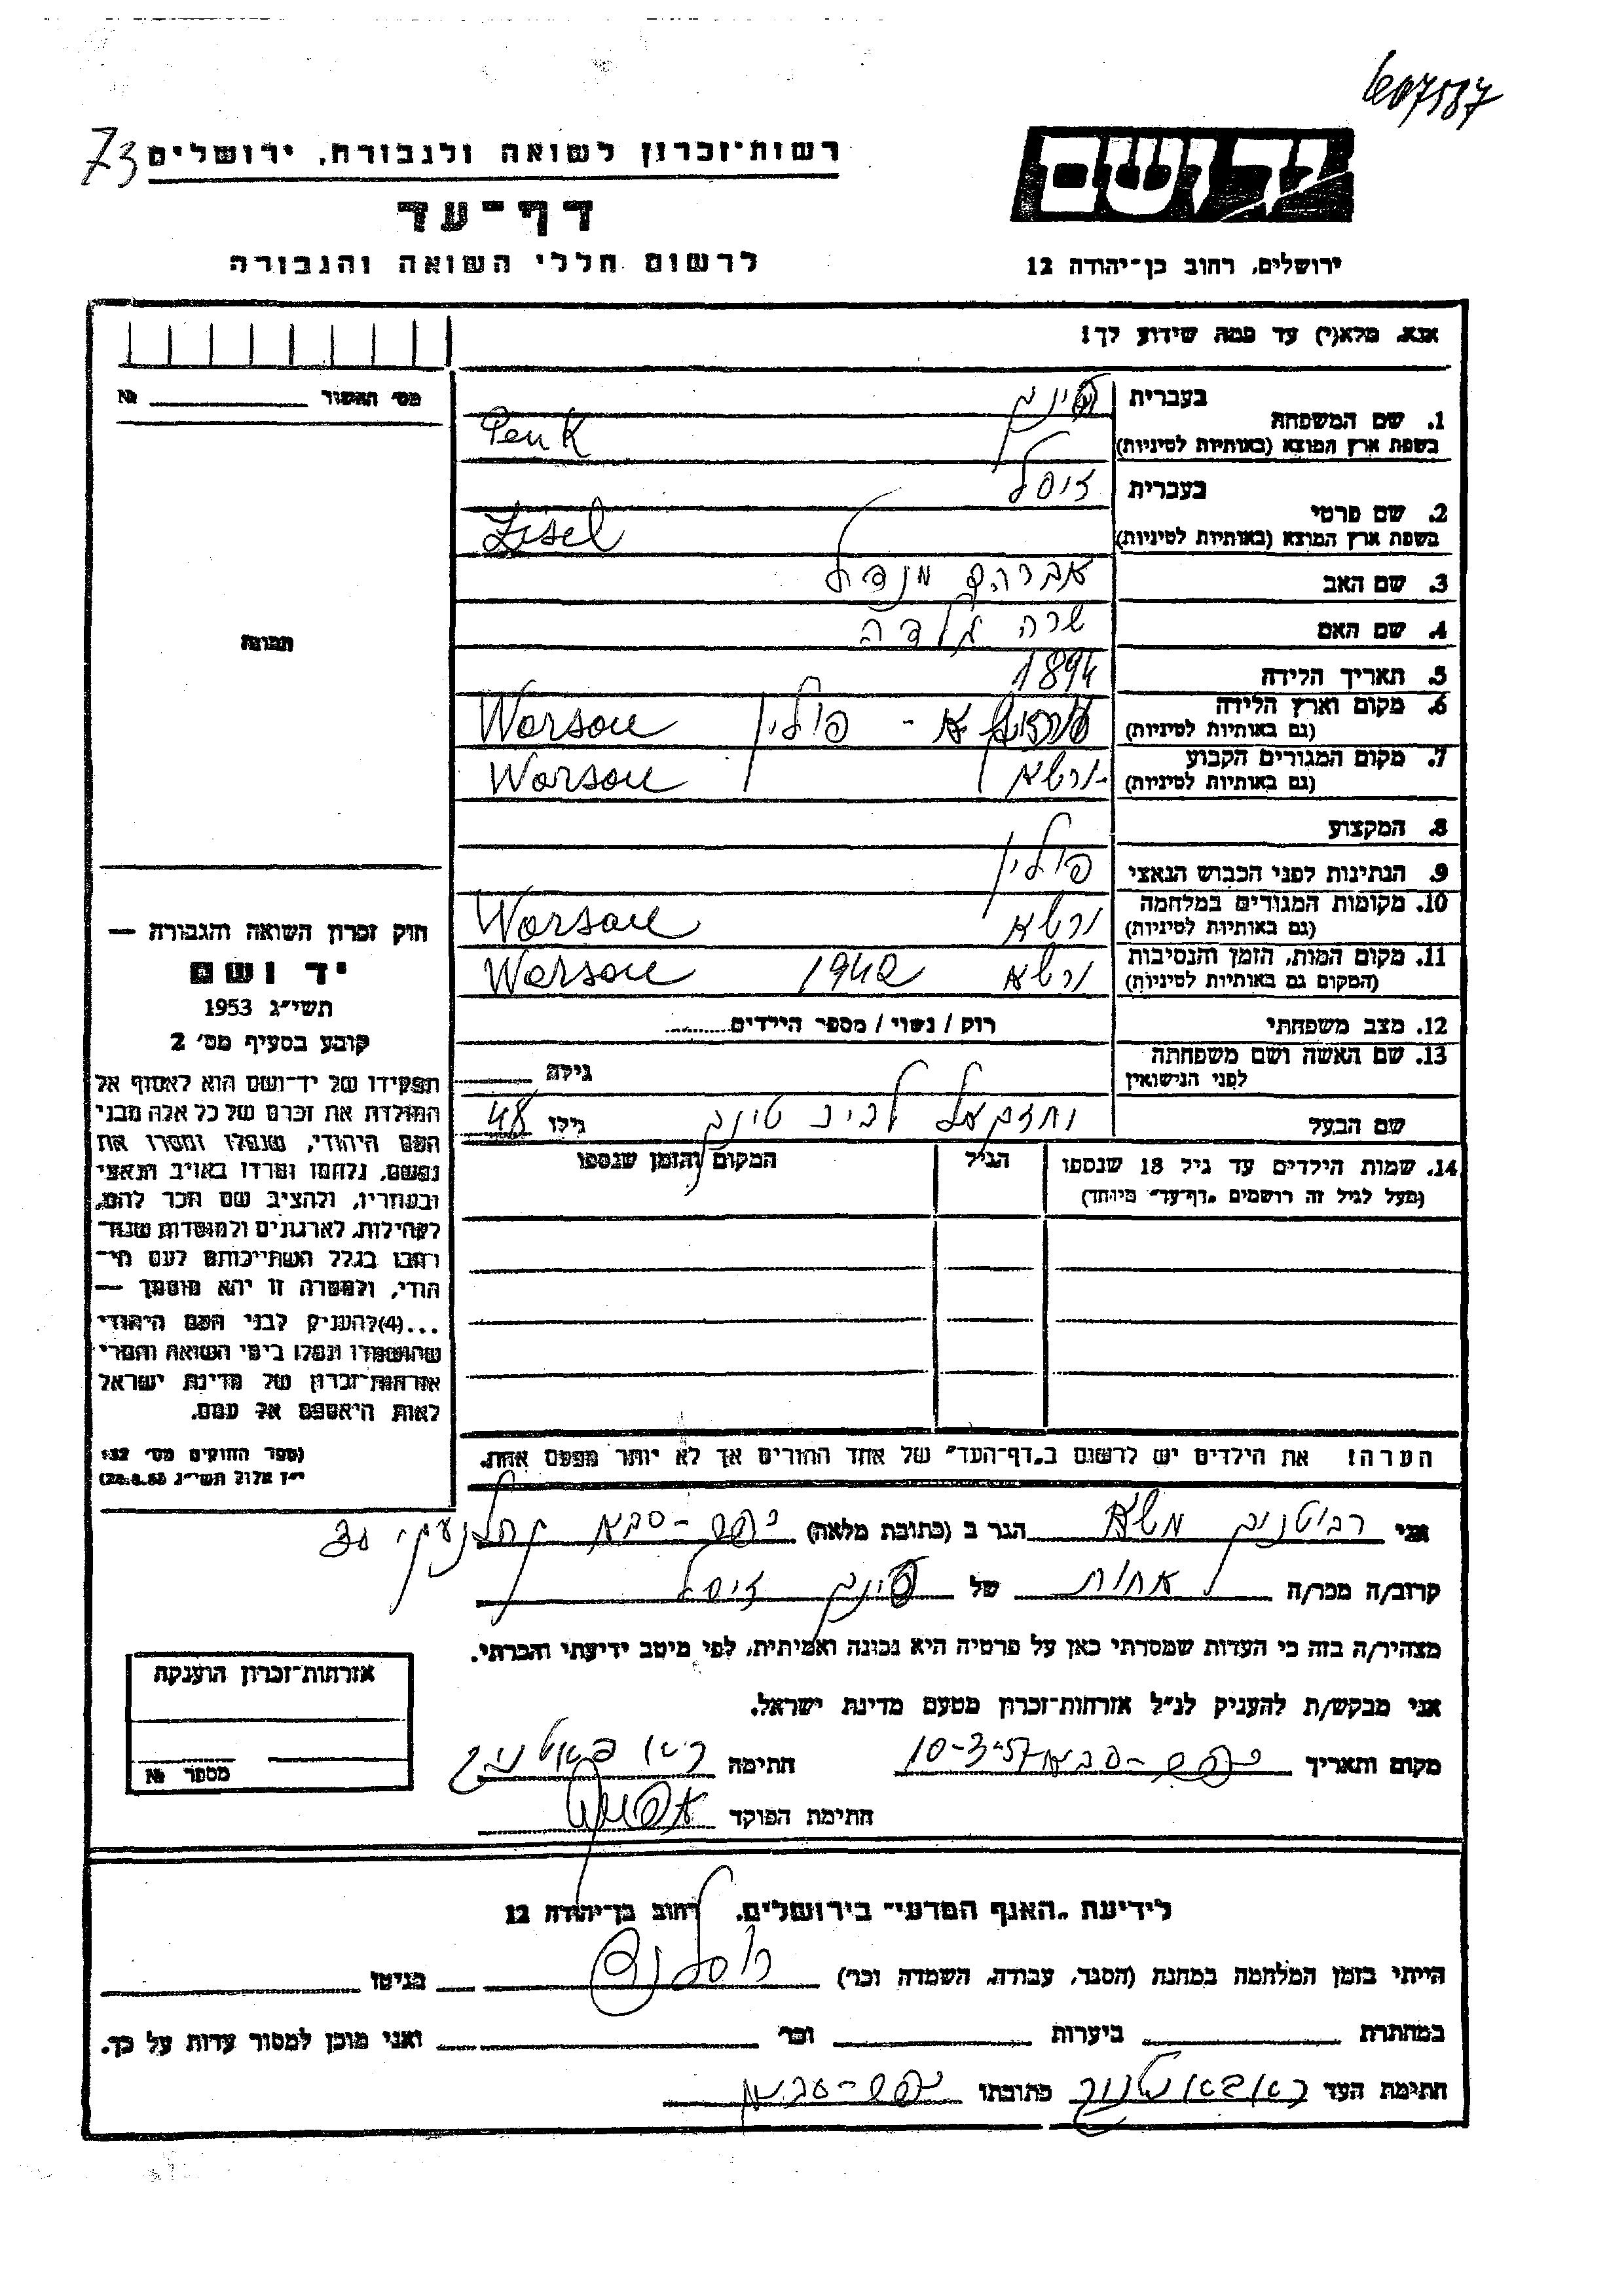 607587
73
רשות־זכרון לשואה ולגבורה, ירושלים
יד ושם
דף־עד
לרשום חללי השואה והגבורה
ירושלים, רחוב בן־יהודה 12
אנא, מלא(י) עד כמה שידוע לך!
מס׳ האשור № ________
1. שם המשפחה
בעברית
בשפת ארץ המוצא (באותיות לטיניות) Penk
2. שם פרטי
בעברית זיסל
בשפת ארץ המוצא (באותיות לטיניות) Zisel
3. שם האב אברהם מנדיל
4. שם האם שרה גולדה
5. תאריך הלידה 1894
6. מקום וארץ הלידה (גם באותיות לטיניות) פולין Warsau
7. מקום המגורים הקבוע (גם באותיות לטיניות) ורשא Warsau
8. המקצוע
9. הנתינות לפני הכבוש הנאצי פולין
10. מקומות המגורים במלחמה (גם באותיות לטיניות) ורשא Warsau
11. מקום המות, הזמן והנסיבות (המקום גם באותיות לטיניות) ורשא 1942 Warsau
12. מצב משפחתי רוק / נשוי / מספר הילדים........
13. שם האשה ושם משפחתה לפני הנישואין גילה
שם הבעל גילו 48
14. שמות הילדים עד גיל 18 שנספו (מעל לגיל זה רושמים „דף־עד״ מיוחד)
הגיל
המקום והזמן שנספו
הערה! את הילדים יש לרשום ב„דף־העד״ של אחד ההורים אך לא יותר מפעם אחת.
תמונה
חוק זכרון השואה והגבורה —
יד ושם
תשי״ג 1953
קובע בסעיף מס׳ 2
תפקידו של יד־ושם הוא לאסוף אל
המולדת את זכרם של כל אלה מבני
העם היהודי, שנפלו ומסרו את
נפשם, נלחמו ומרדו באויב הנאצי
ובעוזריו, ולהציב שם וזכר להם,
לקהילות, לארגונים ולמוסדות שנח־
רבו בגלל השתייכותם לעם הי־
הודי, ולמטרה זו יהא מוסמך —
...(4)להעניק לבני העם היהודי
שהושמדו ונפלו בימי השואה והמרי
אזרחות־זכרון של מדינת ישראל
לאות היאספם אל עמם.
(ספר החוקים מס׳ 132
י״ז אלול תשי״ג 28.8.53)
אני הגר ב (כתובת מלאה) כפר־סבא 30
קרוב/ה מכר/ה אחות של זיסל
מצהיר/ה בזה כי העדות שמסרתי כאן על פרטיה היא נכונה ואמיתית, לפי מיטב ידיעתי והכרתי.
אני מבקש/ת להעניק לנ״ל אזרחות־זכרון מטעם מדינת ישראל.
מקום ותאריך כפר־סבא 10-3-57 חתימה
חתימת הפוקד
אזרחות־זכרון הוענקה
מספר №
לידיעת „האגף המדעי״ בירושלים, רחוב בן־יהודה 12
הייתי בזמן המלחמה במחנה (הסגר, עבודה, השמדה וכר׳) רוסלנד בגיטו
במחתרת ביערות וכר׳ ואני מוכן למסור עדות על כך.
חתימת העד כתובתו כפר־סבא